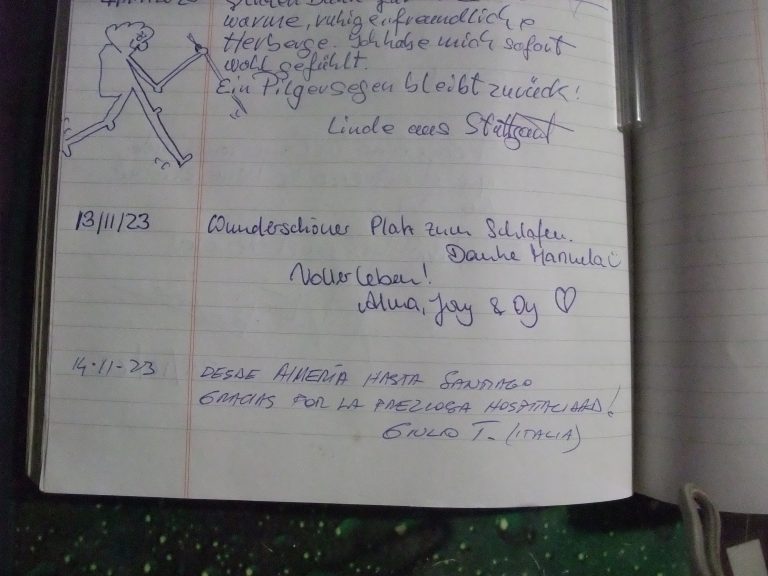 warme, ruhige freundliche
Herberge. Ich habe mich sofort
wohl gefühlt.
Ein Pilgersegen bleibt zurück!
Linde aus Stuttgart
13/11/23 Wunderschöner Platz zum Schlafen.
Danke Manuela
Voller Leben!
Alma, Joy & Oy ♡
14-11-23 DESDE ALMERÍA HASTA SANTIAGO
GRACIAS POR LA PREZIOSA HOSPITALIDAD!
GIULIO T. (ITALIA)